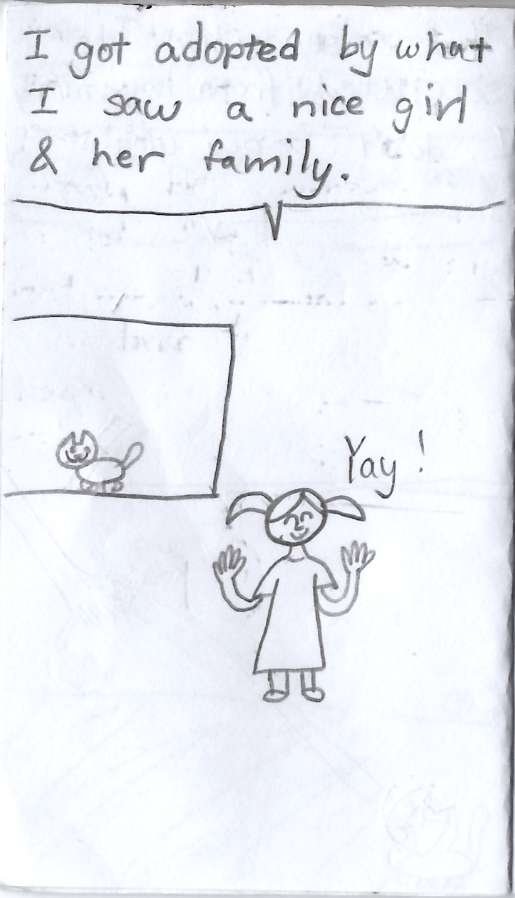 I got adopted by what
I saw a nice girl
& her family.
Yay!